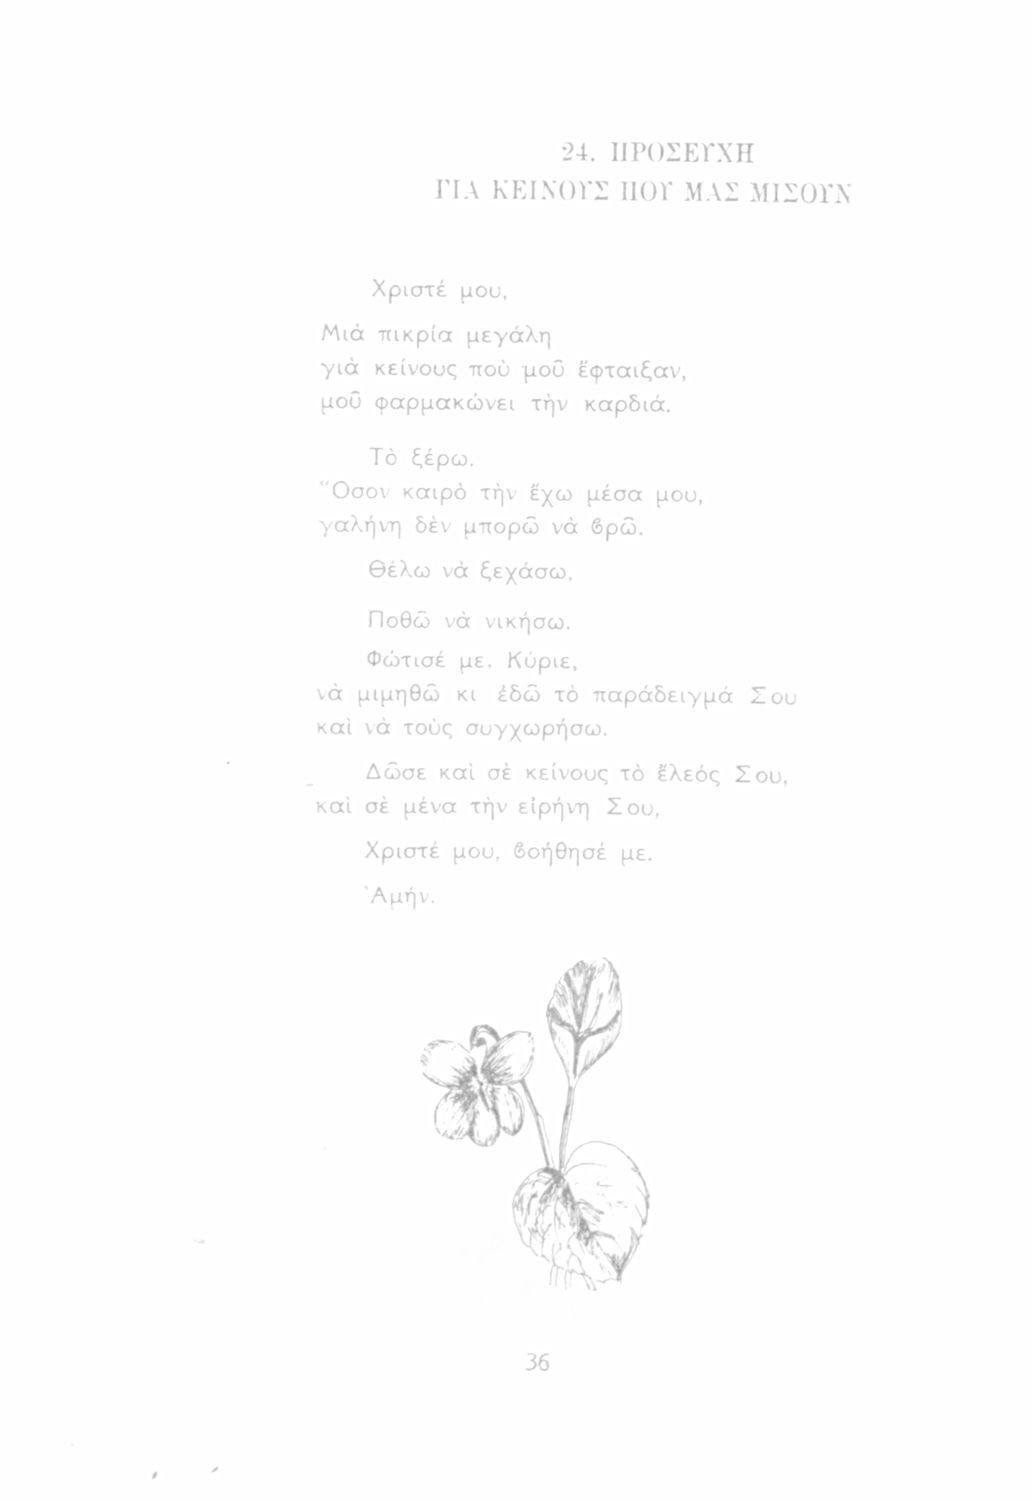 24. ΠΡΟΣΕΥΧΗ
ΓΙΑ ΚΕΙΝΟΥΣ ΠΟΥ ΜΑΣ ΜΙΣΟΥΝ
Χριστέ μου,
Μιὰ πικρία μεγάλη
γιὰ κείνους ποὺ μοῦ ἔφταιξαν,
μοῦ φαρμακώνει τὴν καρδιά.
Τὸ ξέρω.
Ὅσον καιρὸ τὴν ἔχω μέσα μου,
γαλήνη δὲν μπορῶ νὰ ϐρῶ.
Θέλω νὰ ξεχάσω,
Ποθῶ νὰ νικήσω.
Φώτισέ με. Κύριε,
νὰ μιμηθῶ κι ἐδῶ τὸ παράδειγμά Σου
καὶ νὰ τοὺς συγχωρήσω.
Δῶσε καὶ σὲ κείνους τὸ ἔλεός Σου,
καὶ σὲ μένα τὴν εἰρήνη Σου,
Χριστέ μου, ϐοήθησέ με.
Ἀμήν.
36